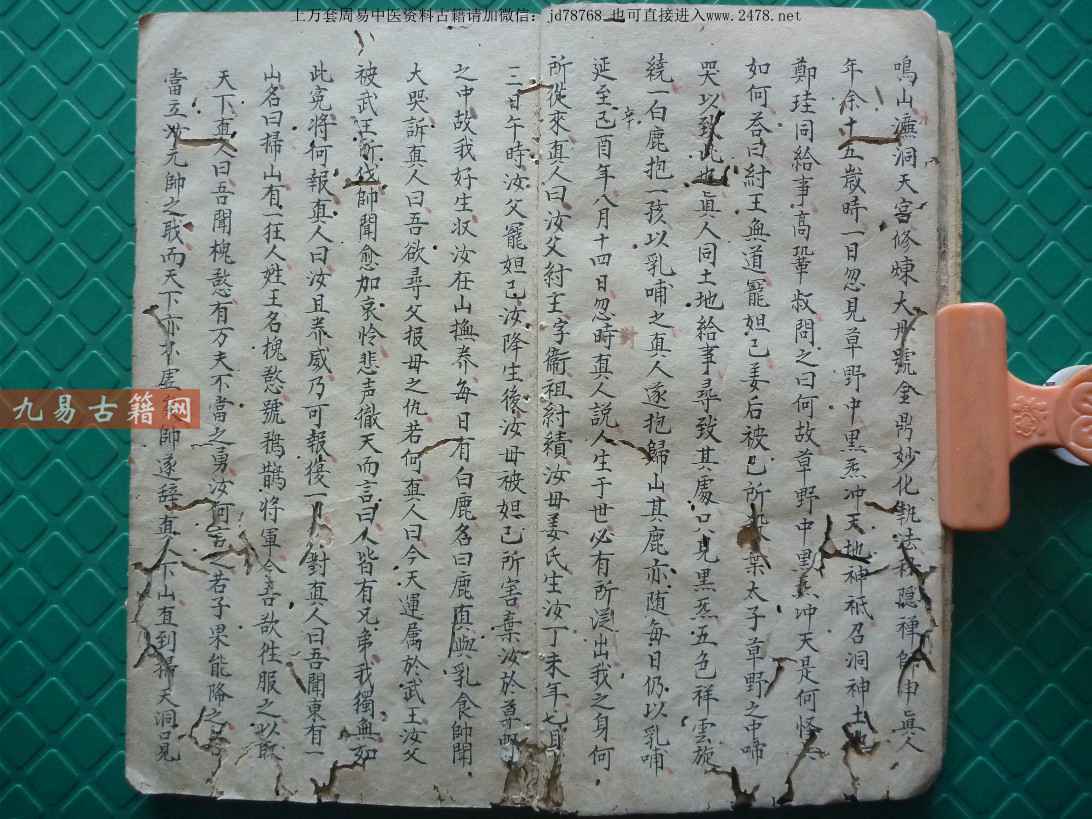 上万套周易中医资料古籍请加微信：jd78768 也可直接进入www.2478.net
鳴山瀍洞天宮修煉大丹號金鼎妙化執法 隱禪師申真人
年余十五歲時一日忽見草野中黒炁冲天地神祇召洞神土地
鄭珪同給事高鞏叔問之曰何故草野中黒炁冲天是何怪
如何荅曰紂王無道寵妲己姜后被己所 葉太子草野之中啼
哭以致此也真人同土地給事尋致其處只見黒炁五色祥雲旋
繞一白鹿抱一孩以乳哺之真人遂抱歸山其鹿亦随每日仍以乳哺
辛
延至己酉年八月十四日忽時真人説人生于世必有所 出我之身何
對
所從來真人曰汝父紂王字衞祖紂績汝母姜氏生汝丁未年七月
三日午時汝父寵妲己汝降生後汝母被妲己所害棄汝於草野
之中故我好生収汝在山撫养每日有白鹿名曰鹿直與乳食帥聞
大哭訴真人曰吾欲尋父报母之仇若何真人曰今天運属於武王汝父
被武王所伐帥聞愈加哀怜悲声徹天而言曰人皆有兄弟我獨無如
此寃將何報真人曰汝且养威乃可報復一 對真人曰吾聞東有一
山名曰掃山有一狂人姓王名槐愗號鵶鹊將軍今吾欲徃服之以取
天下真人曰吾聞槐愗有万夫不當之勇汝何 之若子果能降之
當立汝元帥之职而天下亦不 帥遂辞真人下山直到掃天洞口見
九易古籍网